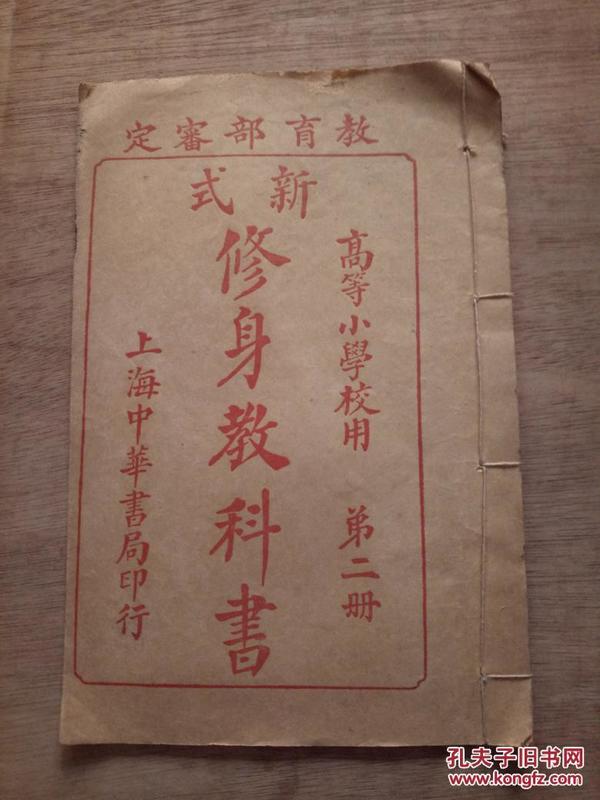 教育部審定
新式
高等小學校用 第二册
修身教科書
上海中華書局印行
孔夫子旧书网
www.kongfz.com